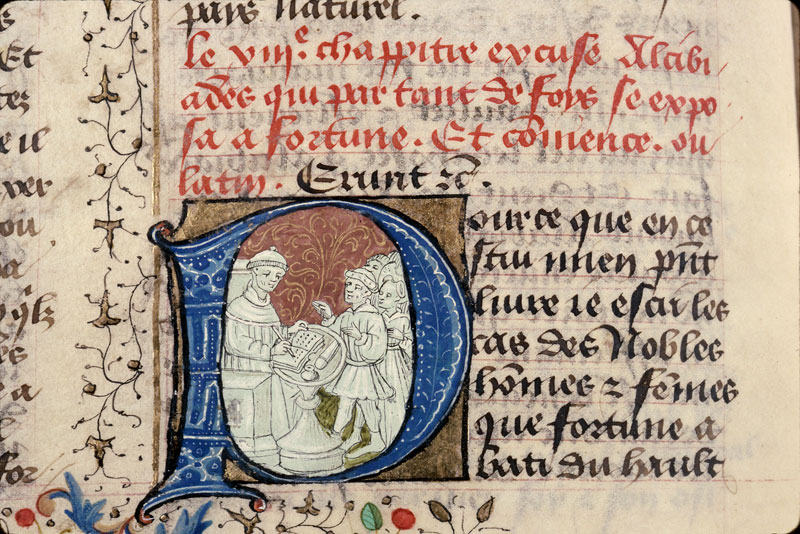 pays naturel.
le viiie chappitre excuse Alcibi
ades qui par tant de foys se expo
sa a fortune. Et cōmence. ou
latin. Erunt
Pour ce que en ce
stui mien p̄nt
livre ie escri les
cas des Nobles
hōmes ⁊ fēmes
que fortune a
bati du hault